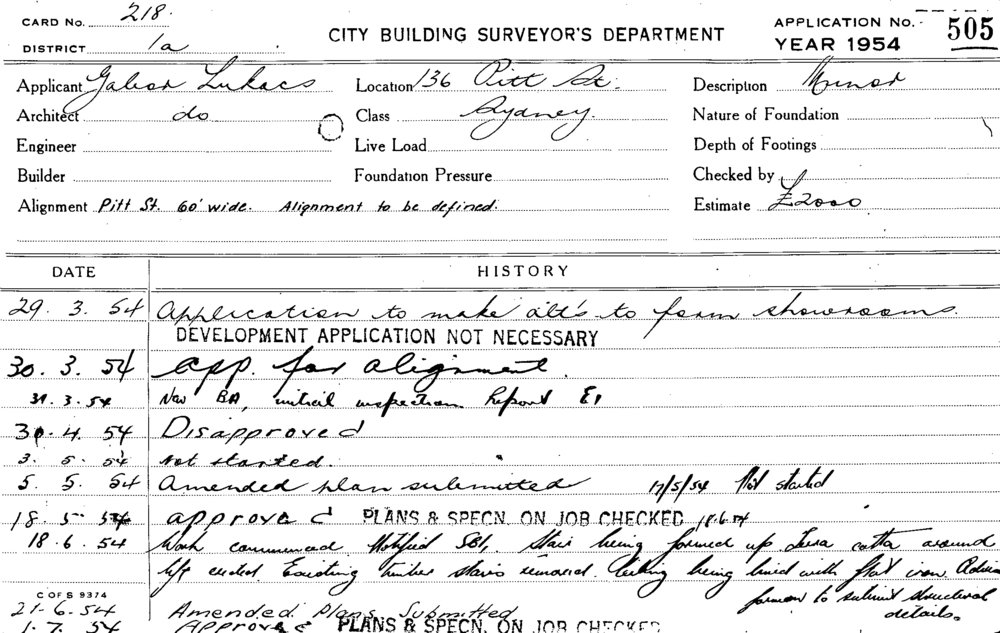 CARD No. 218. CITY BUILDING SURVEYOR'S DEPARTMENT APPLICATION No. 505
DISTRICT 1a YEAR 1954
Applicant Gabor Lukacs Location 136 Pitt St. Description Minor
Architect do Class Sydney. Nature of Foundation
Engineer Live Load Depth of Footings
Builder Foundation Pressure Checked by
Alignment Pitt St. 60' wide. Alignment to be defined. Estimate £2000
DATE HISTORY
29. 3. 54 Application to make alt's to form showrooms.
DEVELOPMENT APPLICATION NOT NECESSARY
30. 3. 54 app. for alignment.
31. 3. 54 New BA, initial inspection Report E1
30. 4. 54 Disapproved
3. 5. 54 Not started.
5. 5. 54 Amended plan submitted 17/5/54 Not started
18. 5. 54 approved PLANS & SPECN. ON JOB CHECKED 18.6.54
18. 6. 54 Work commenced. Notified SBI, Stair being formed up Terra cotta around
lift ended. Existing timber stairs removed. Ceiling being lined with flat iron. Advise
foreman to submit structural
C OF S 9374
details.
21-6-54 Amended Plans Submitted
1. 7. 54 Approved PLANS & SPECN. ON JOB CHECKED